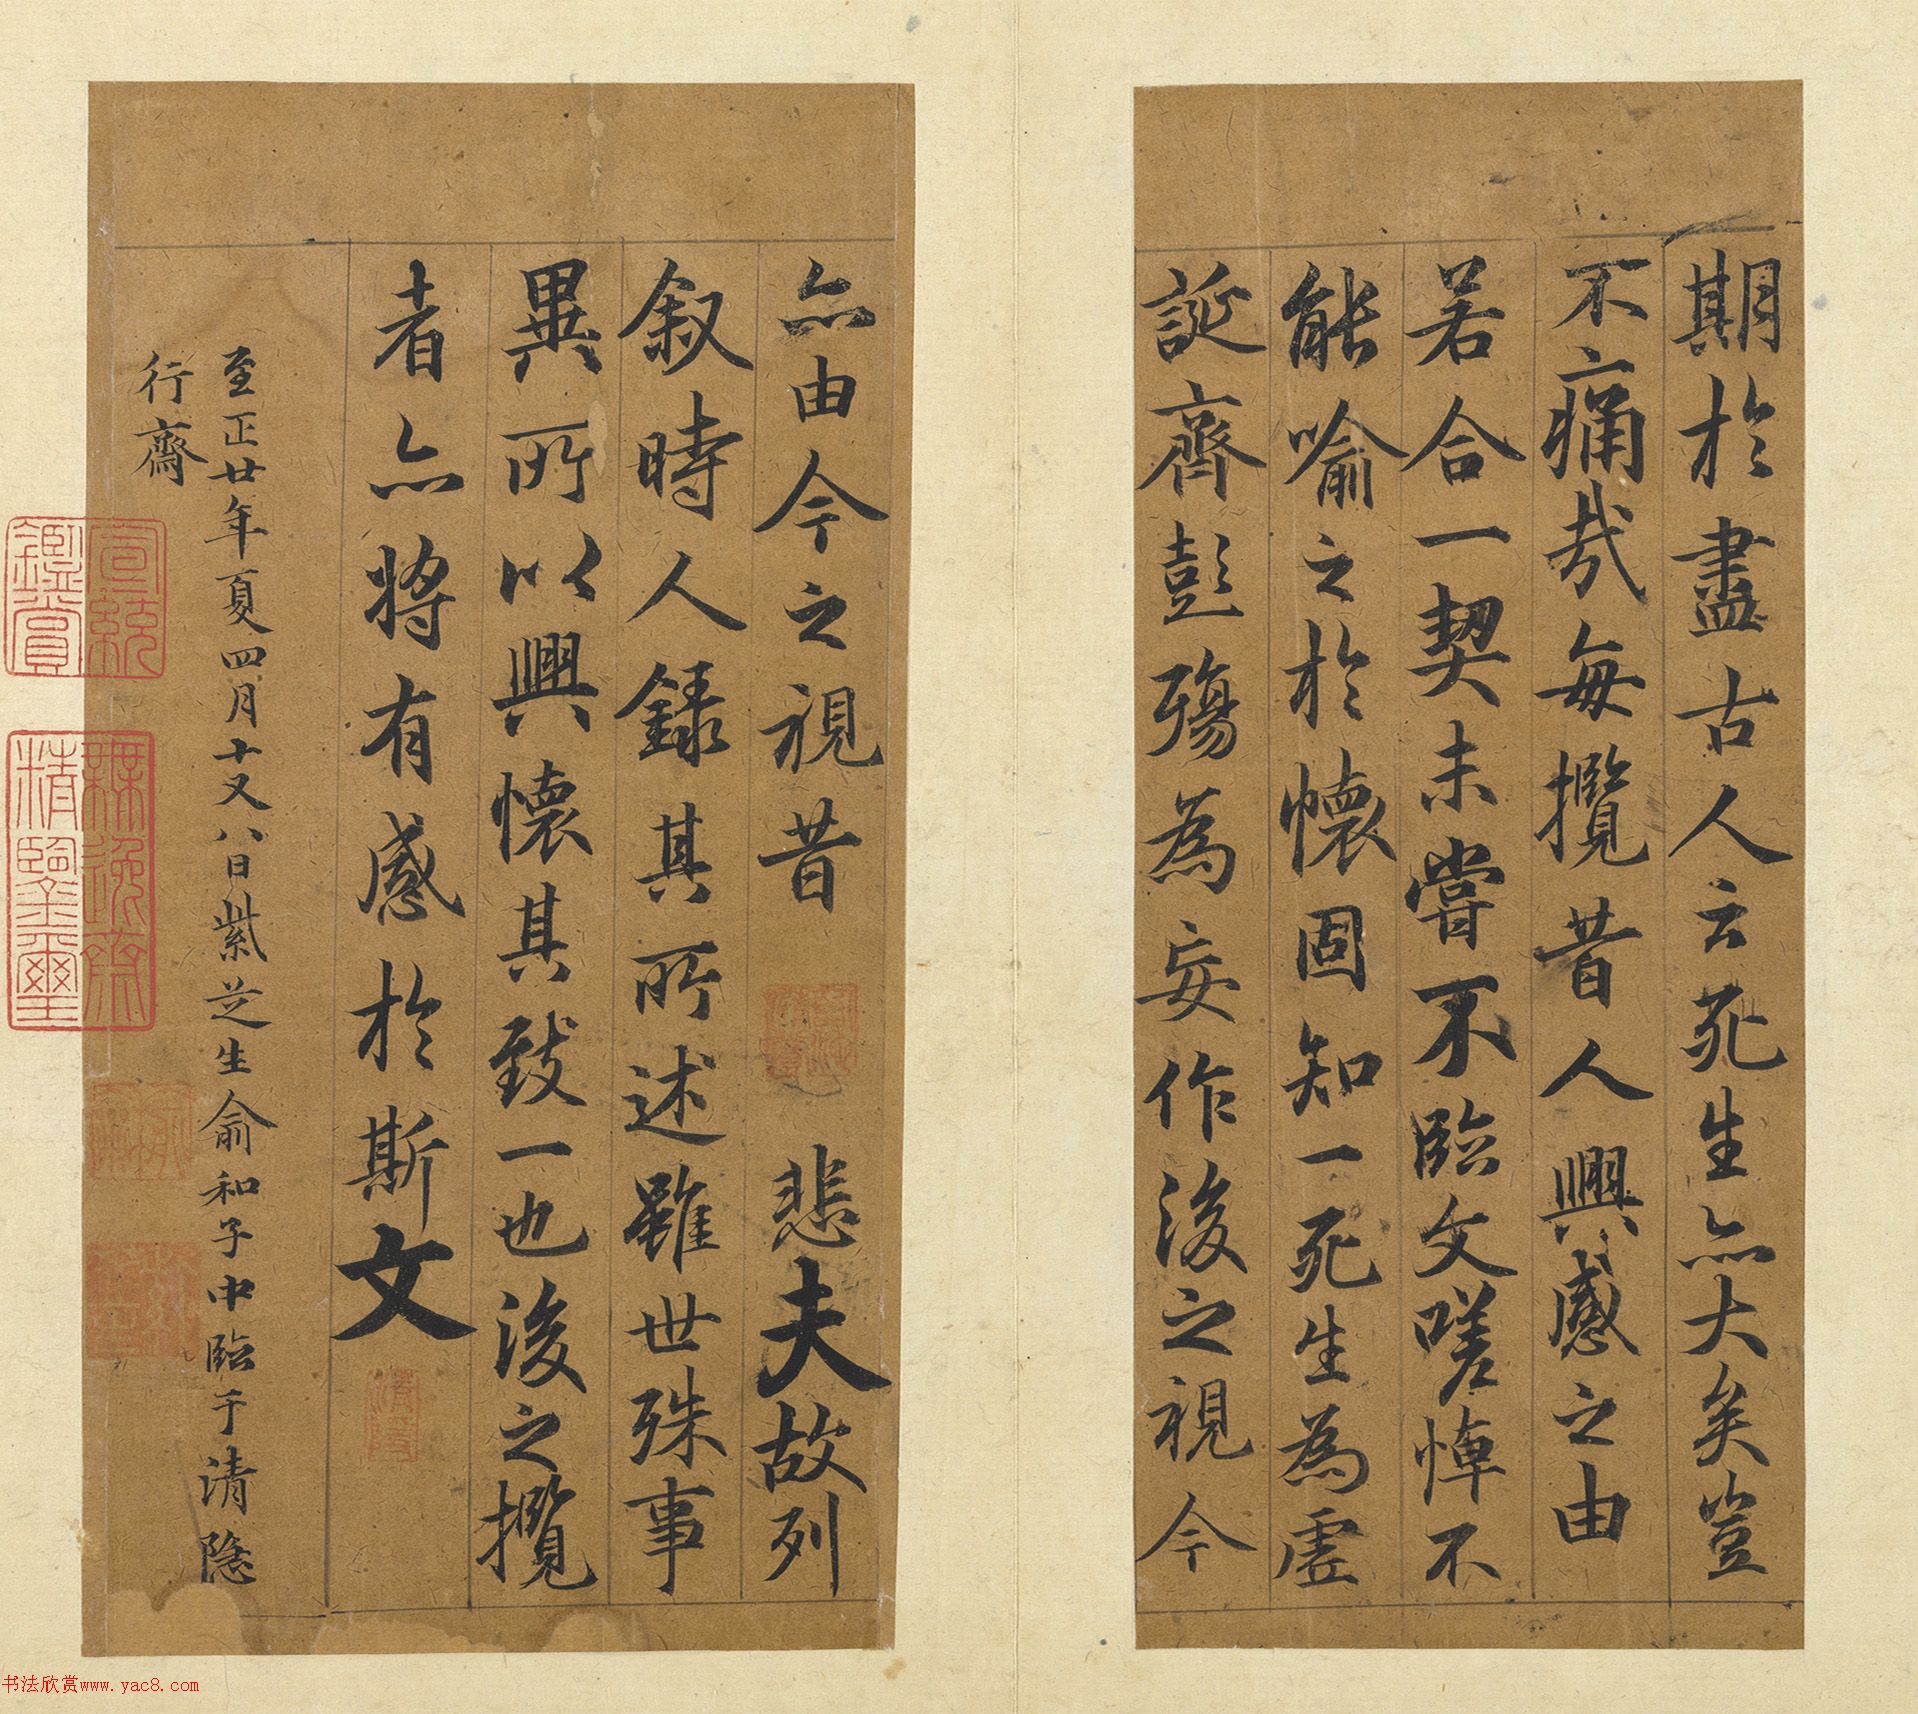 期於盡古人云死生亦大矣豈
不痛哉每攬昔人興感之由
若合一契未嘗不臨文嗟悼不
能喻之於懷固知一死生為虛
誕齊彭殤為妄作後之視今
亦由今之視昔 悲夫故列
叙時人錄其所述雖世殊事
異所以興懷其致一也後之攬
者亦將有感於斯文
至正廿年夏四月十又八日紫芝生俞和子中臨于清隱
行齋
宣統鑑賞
無逸齋精鑒璽
书法欣赏www.yac8.com